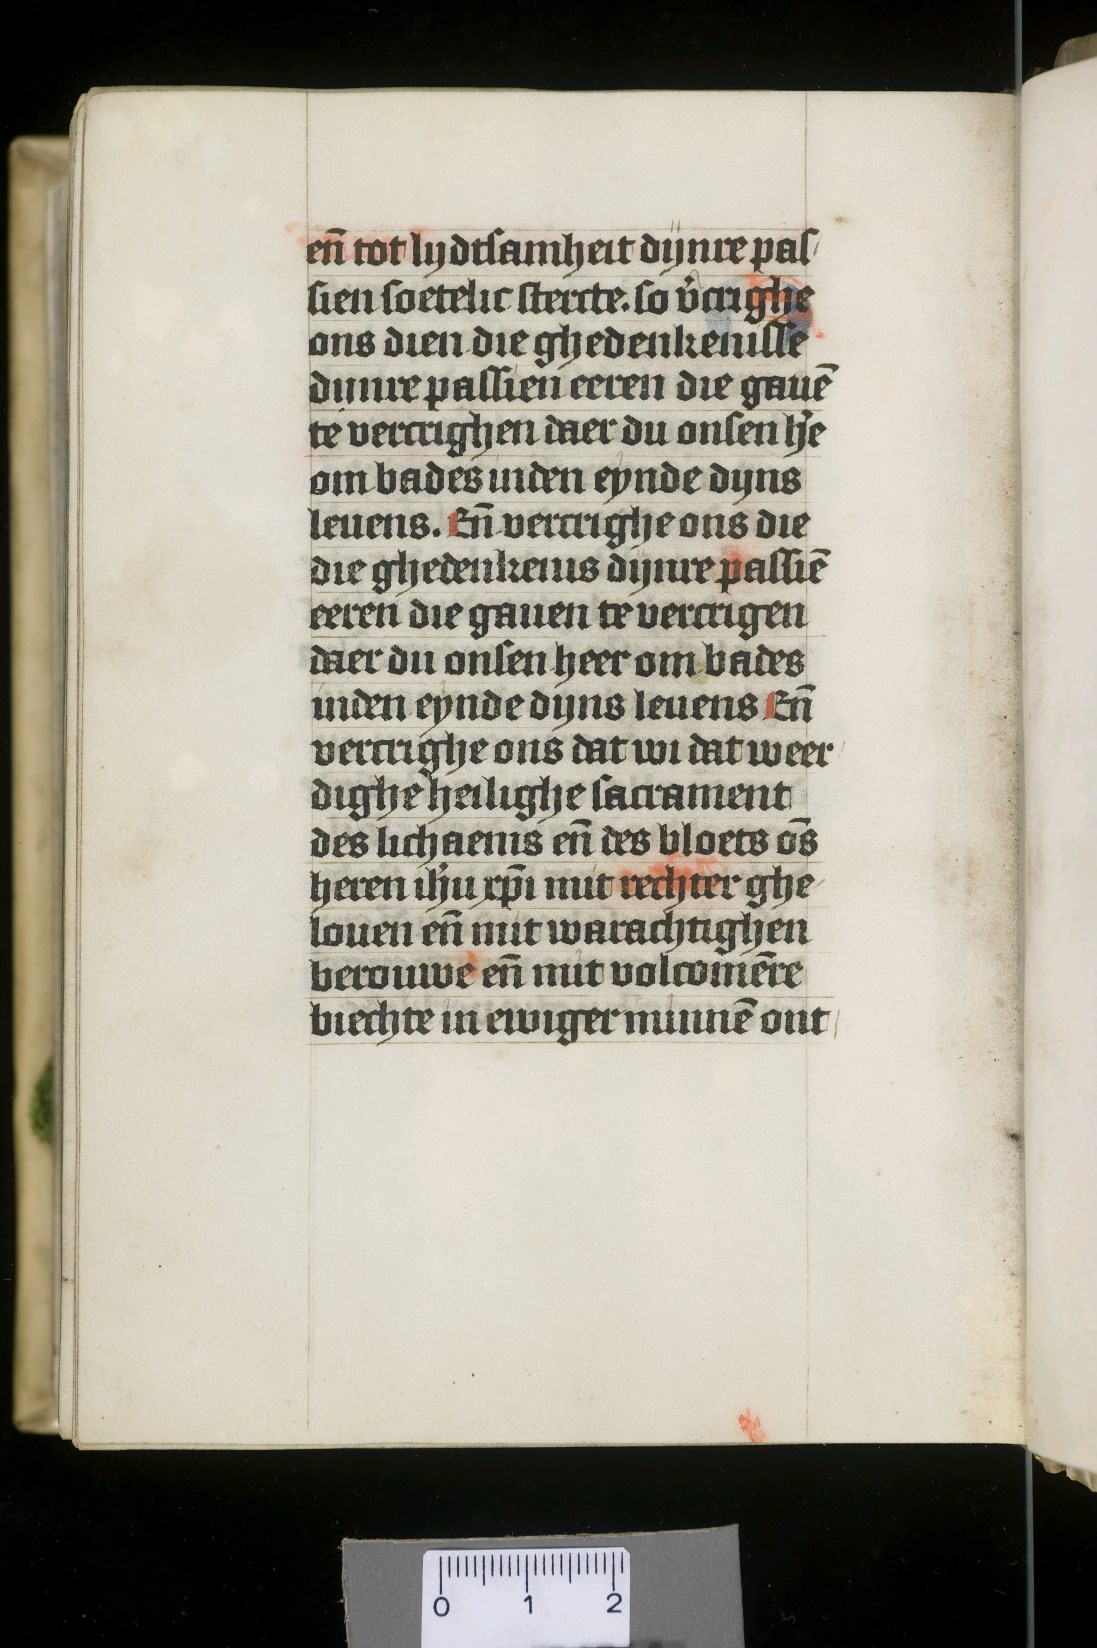 en̄ tot lijdtsamheit dijnre pas/
sien soetelic stercte. so v̄crighe
ons dien die ghedenkenisse
dijnre passien eeren die gauē
te vercrighen daer du onsen he᷑
om bades inden eynde dijns
leuens. En̄ vercrighe ons die
die ghedenkenis dijnre passiē
eeren die gauen te vercrigen
daer du onsen heer om bades
inden eynde dijns leuens En̄
vercrighe ons dat wi dat weer/
dighe heilighe sacrament
des lichaems en̄ des bloets ōs
heren ih̄u xp̄i mit rechter ghe/
louen en̄ mit warachtighen
berouwe en̄ mit volcomēre
biechte in ewiger minnē ont/
0 1 2